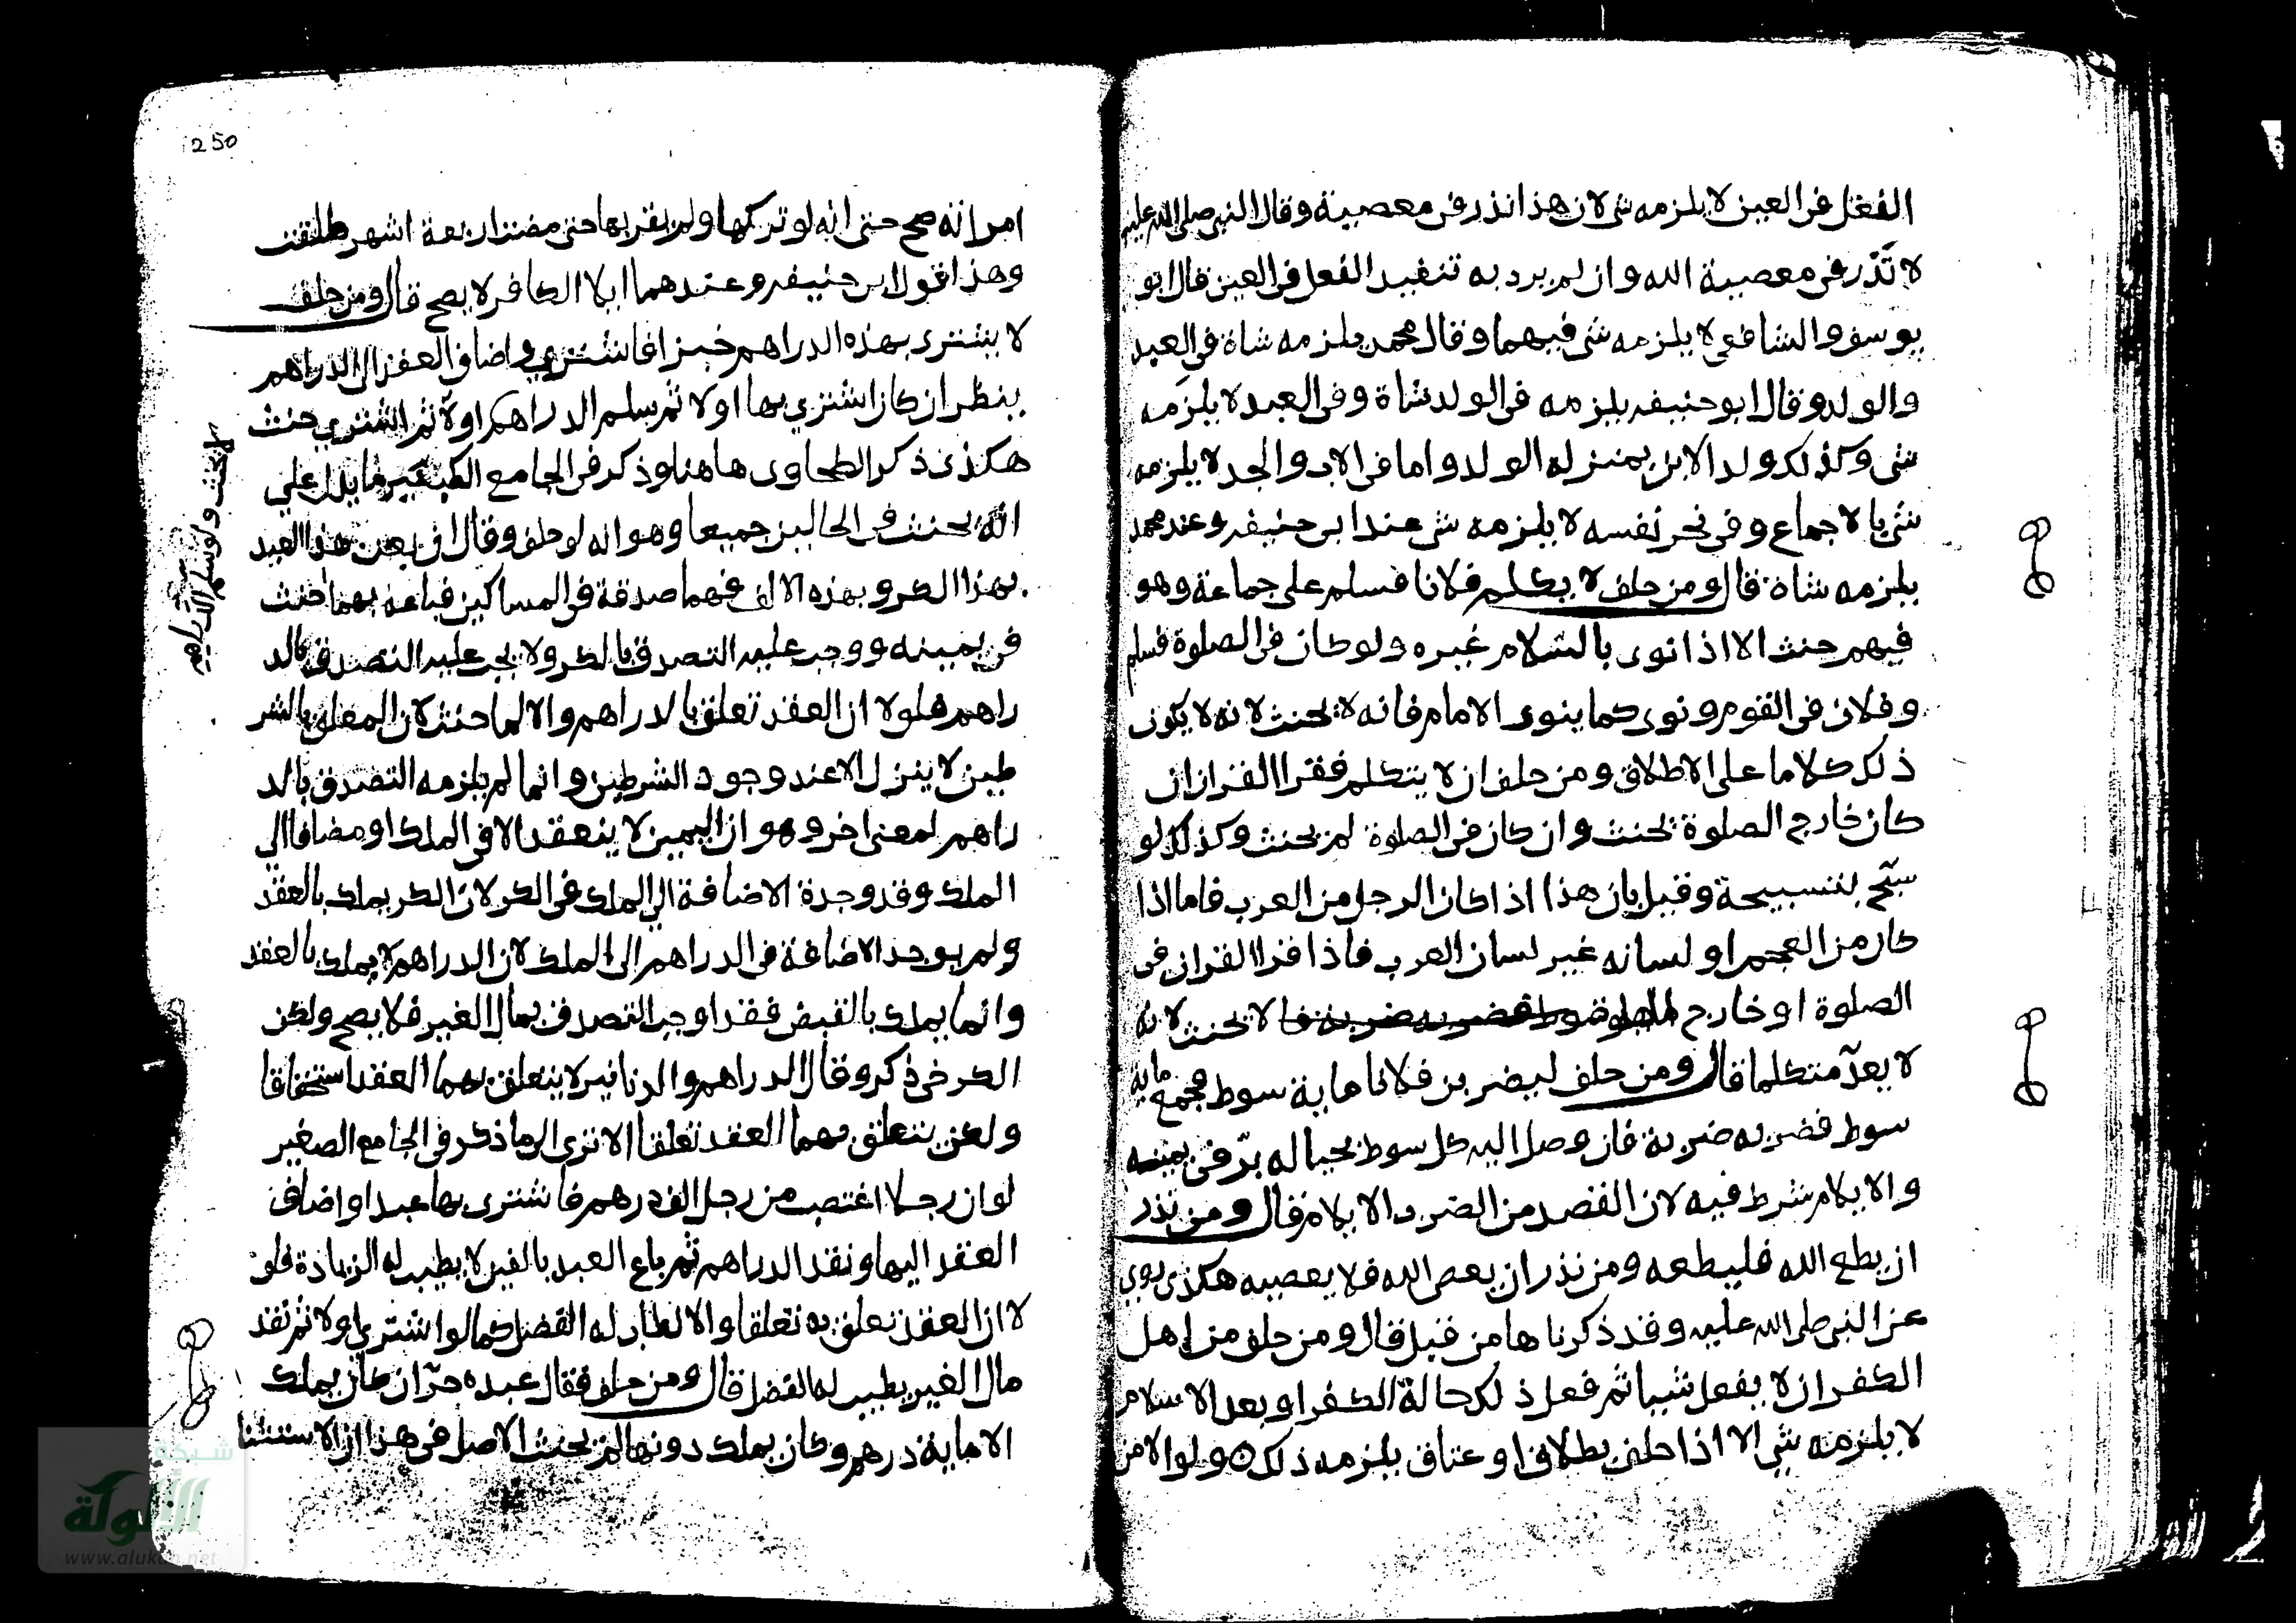 الفعل فى العين لا يلزمه شى لان هذا نذر فى معصية وقال النبى صلى الله عليه
لا نذر فى معصية الله وان لم يرد به تنفيد الفعل فى العين قال ابو
يوسف والشافعي لا يلزمه شى فيهما وقال محمد يلزمه شاة فى العبد
والولد وقال ابو حنيفه يلزمه فى الولد شاة وفى العبد لا يلزمه
شى وكذلك ولد الابن بمنزله الولد واما فى الاب والجد لا يلزمه
شى بالاجماع وفى نحر نفسه لا يلزمه شى عند ابى حنيفه وعند محمد
يلزمه شاة قال ومن حلف لا يكلم فلانا فسلم على جماعة وهو
فيهم حنث الا اذا نوى بالسلام غيره ولو كان فى الصلوة فسلم
وفلان فى القوم ونوى كما ينوى الامام فانه لا يحنث لانه لا يكون
ذلك كلاما على الاطلاق ومن حلف ان لا يتكلم فقرا القران ان
كان خارج الصلوة يحنث وان كان فى الصلوة لم يحنث وكذلك لو
سبّح بتسبيحة وقيل بان هذا اذا كان الرجل من العرب فاما اذا
كان من العجم او لسانه غير لسان العرب فاذا قرا القران فى
الصلوة او خارج الصلوة فلا يحنث لانه
لا يعدّ متكلما قال ومن حلف ليضربن فلانا ماية سوط فجمع ماية
سوط فضربه ضربة فان وصل اليه كل سوط بحياله برّ فى يمينه
والايلام شرط فيه لان القصد من الضرب الايلام قال ومن نذر
ان يطع الله فليطعه ومن نذر ان يعص الله فلا يعصيه هكذى روي
عن النبى صلى الله عليه وقد ذكرنا ها من قبل قال ومن حلف من اهل
الكفر ان لا يفعل شيا ثم فعل ذلك حالة الكفر او بعد الاسلام
لا يلزمه شي الا اذا حلف بطلاق او عتاق يلزمه ذلك ولو الا من
250
امراته صح حتى انه لو تركها ولم يقربها حتى مضت اربعة اشهر طلقت
وهذا قول ابى حنيفه وعندهما ايلا الكافر لا يصح قال ومن حلف
لا يشترى بهذه الدراهم خبزا فاشتري واضاف العقد الى الدراهم
ينظر ان كان اشترى بها اولا ثم سلم الدراهم اولا ثم اشتري حنث
هكذى ذكر الطحاوى ها هنا وذكر فى الجامع الكبير ما يدل علي
انه يحنث فى الحالين جميعا وهو انه لو حلف وقال ان بعت هذا العبد
بهذا الكر وبهذه الالف فهما صدقة فى المساكين فباعه بهما حنث
فى يمينه ووجب عليه التصدق بالكر ولا يجب عليه التصدق بالد
راهم فلولا ان العقد تعلق بالدراهم والا لما حنث لان المعلق بالشر
طين لا ينزل الا عند وجود الشرطين وانما لم يلزمه التصدق بالد
راهم لمعنى اخر وهو ان اليمين لا ينعقد الا فى الملك او مضافا الى
الملك وقد وجدة الاضافة الى الملك فى الكر لان الكر يملك بالعقد
ولم يوجد الاضافة فى الدراهم الى الملك لان الدراهم لا يملك بالعقد
وانما يملك بالقبض فقد اوجب التصدق بمال الغير فلا يصح ولكن
الكرخى ذكر وقال الدراهم والدنانير لا يتعلق بهما العقد استحقاقا
ولكن يتعلق بهما العقد تعلقا الا ترى الى ما ذكر فى الجامع الصغير
لو ان رجلا اغتصب من رجل الف درهم فاشترى بها عبدا واضاف
العقد اليها ونقد الدراهم ثم باع العبد بالفين لا يطيب له الزيادة فلو
لا ان العقد تعلق به تعلقا والا لطاب له الفضل كما لو اشترى اولا ثم نقد
مال الغير يطيب له الفضل قال ومن حلف فقال عبده حرّ ان كان يملك
الا ماية درهم وكان يملك دونها لم يحنث الاصل فى هذا ان الاستثنا
لا يحنث ولو سلم الدراهم
شبكة
الألوكة
www.alukah.net